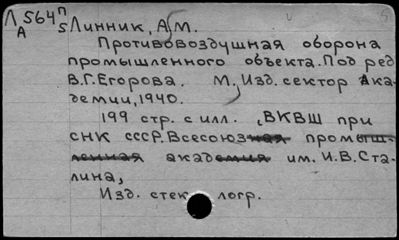 Л 564 п
А 5
Линник, А. М.
Противовоздушная оборона
промышленного объекта. Под ред
В.Г. Егорова. М., Изд. сектор Ака-
демии, 1940.
199 стр. с илл. , ВКВШ при
СНК СССР. Всесоюзная промыш-
ленная академия им. И.В. Ста-
лина,
Изд. стеклогр.